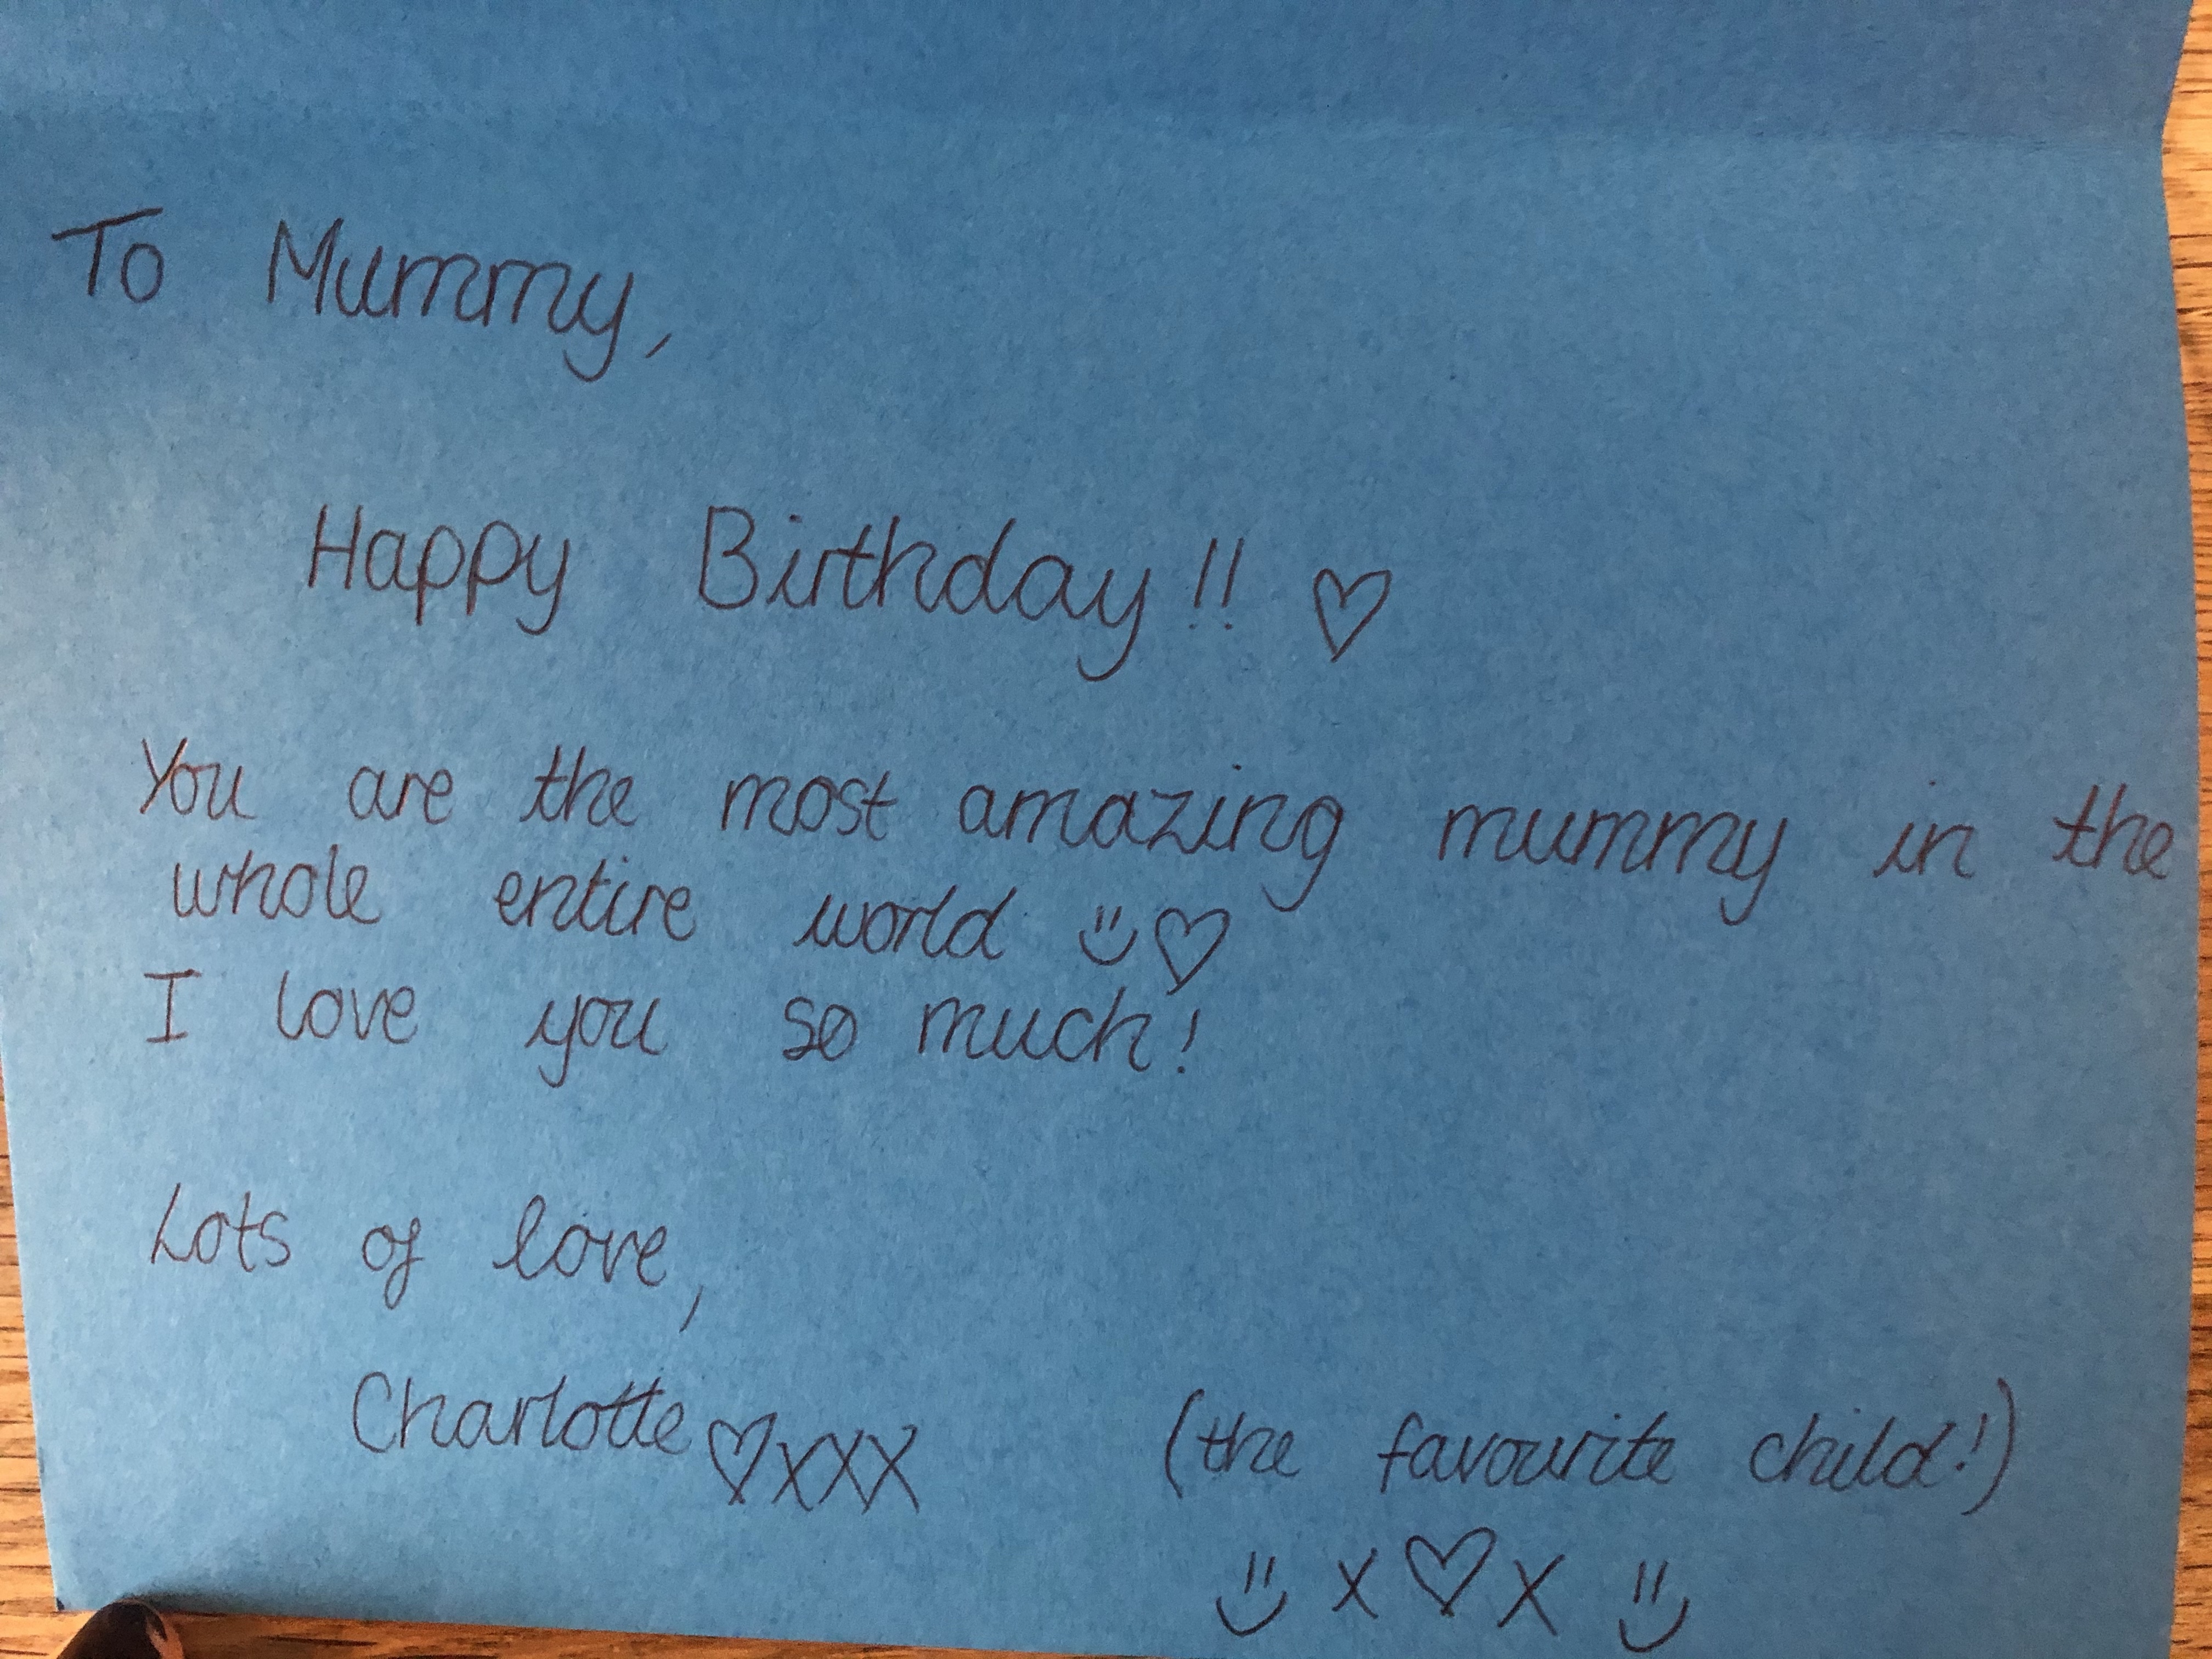 To Mummy,
Happy Birthday!! ♡
You are the most amazing mummy in the
whole entire world :) ♡
I love you so much!
Lots of love,
Charlotte ♡xxx (the favourite child!)
:) x ♡ x :)